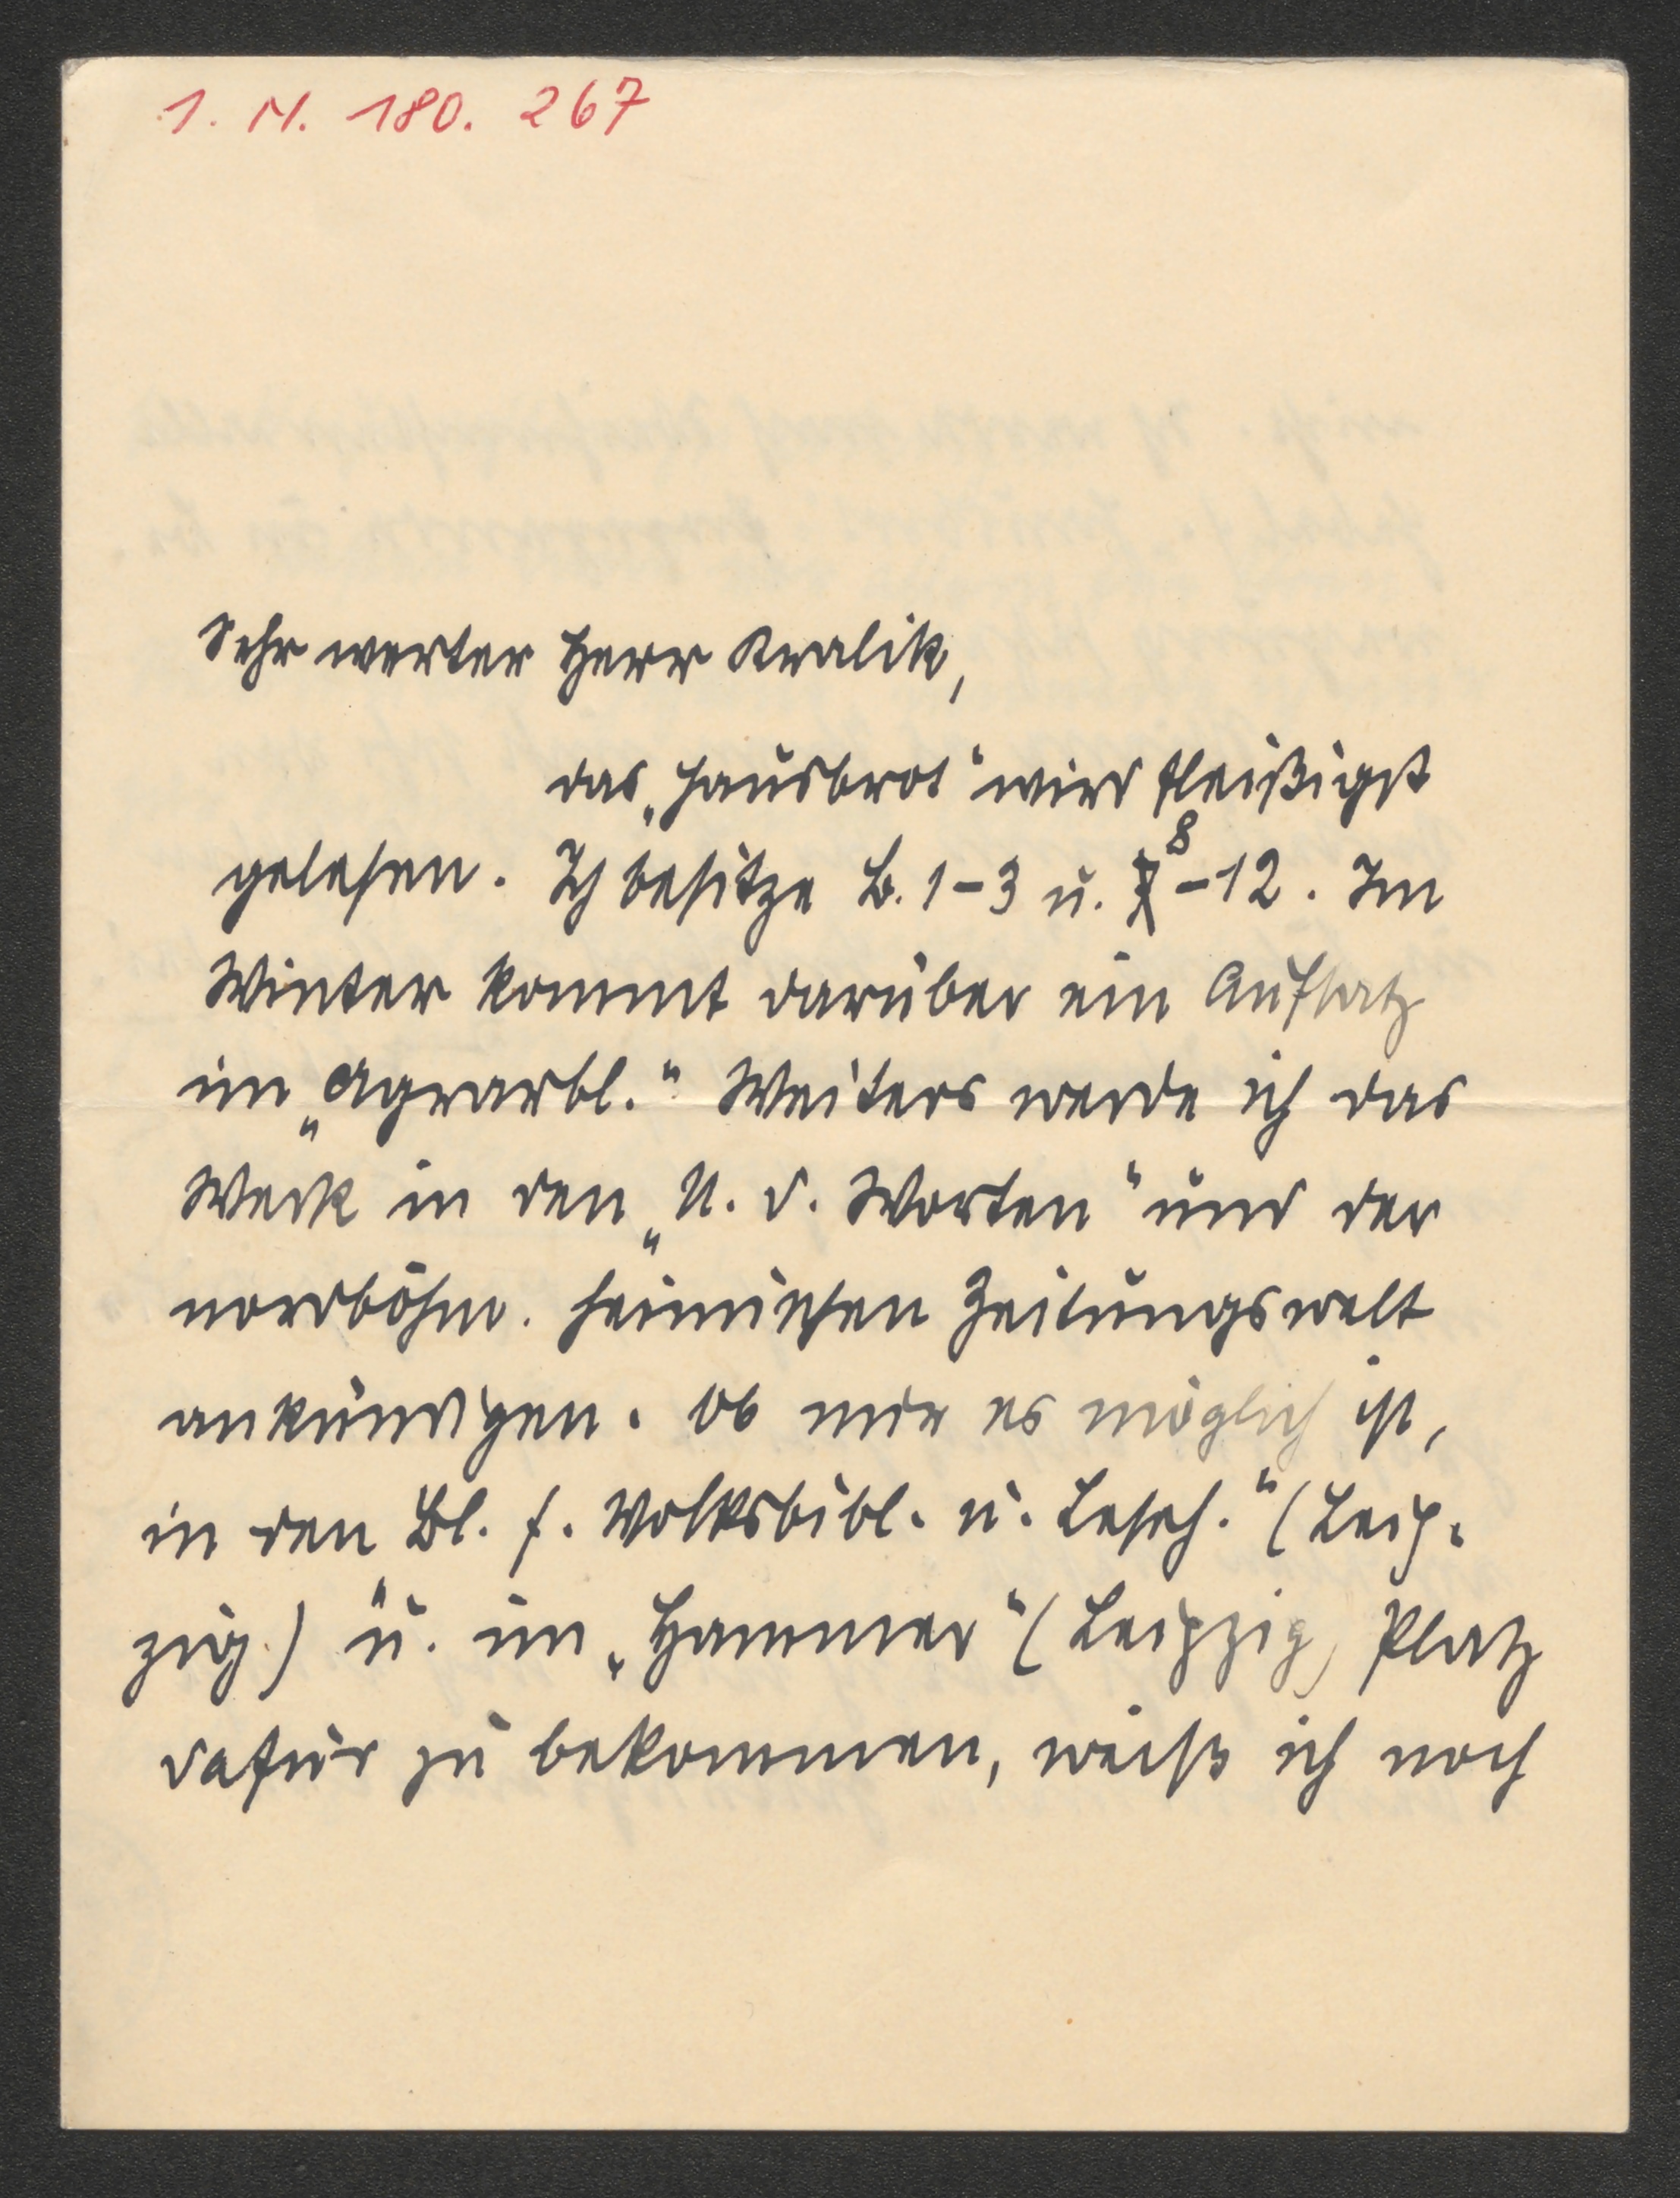 1. N. 180. 267
Sehr werter Herr Kralik,
das „Hausbrot“ wird fleißigst
gelesen. Ich besitze B. 1-3 u. 8-12. Im
Winter kommt darüber ein Aufsatz
im „Agrarbl.“ Weiters werde ich das
Werk in den „N. d. Worten“ und der
nordböhm. heimischen Zeitungswelt
ankündigen. Ob mir es möglich ist,
in den „Bl. f. Volksbibl. u. Leseh.“ (Leip-
zig) u. im „Hammer“ (Leipzig) Platz
dafür zu bekommen, weiß ich noch